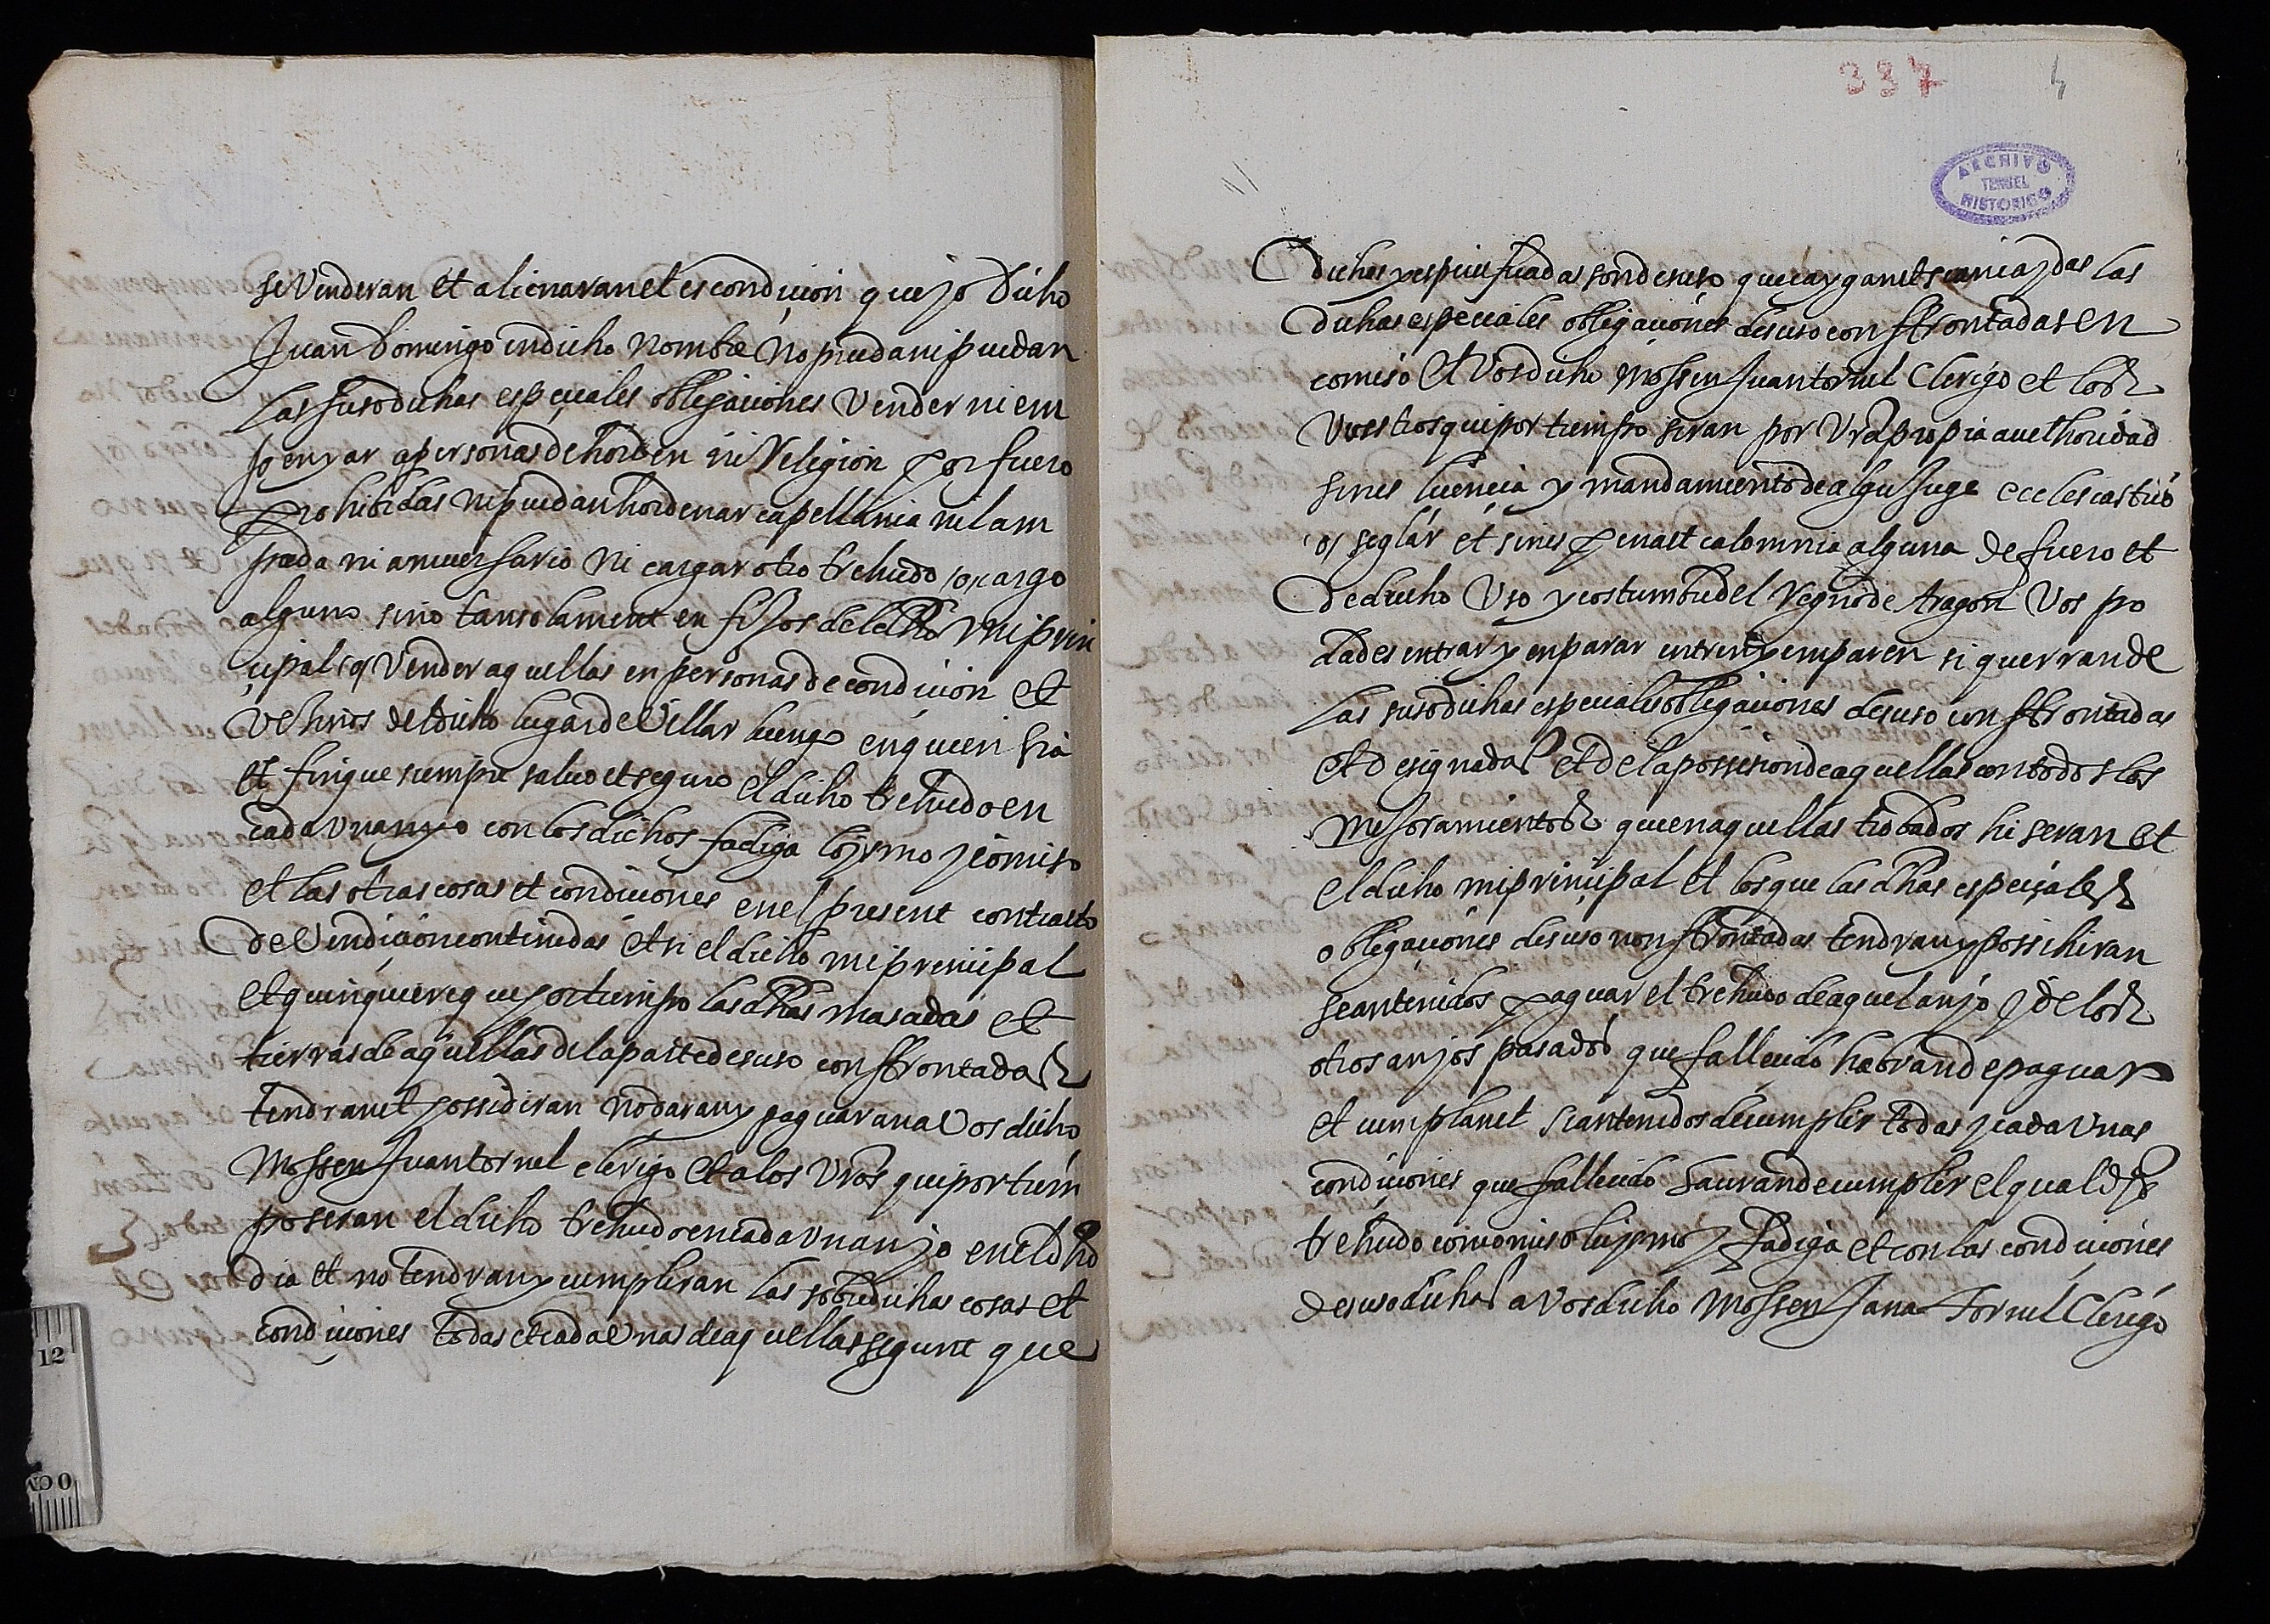 se Venderan et alienaran et es condicion que jo dicho
Juan Domingo en dicho nombre no pueda ni puedan
las susodichas especiales obligaciones Vender ni em
penyar a personas de horden ni Religion por fuero
prohibidas ni puedan hordenar capellania ni lam
pada ni aniuersario ni cargar otro trehudo o cargo
alguno sino tan solament en fijos del dho mi prin
cipal o Vender aquellas en personas de condicion et
Vehinos del dicho lugar de Villar luengo en quien sia
et finque siempre saluo et seguro el dicho trehudo en
cada un anyo con los dichos fadiga loysmo y comiso
et las otras cosas et condiciones en el present contracto
de Vendicion contenidas et si el dicho mi principal
et quinquiere que por tiempo las dhas masadas et
tierras de aquellas de la parte de suso conffrontadas
tendran et possidiran no daran y paguaran a Vos dicho
Mossen Juan tornel clerigo et a los Vros qui por tiem
po seran el dicho trehudo en cada un anjo en el dho
dia et no tendran y cumpliran las sobredichas cosas et
condiciones todas et cada unas de aquellas segunt que
337 4
ARCHIVO
TERUEL
HISTORICO
dichas y especificadas son de suso que caygan et sean caydas las
dichas especiales obligaciones de suso conffrontadas en
comiso et Vos dicho Mossen Juan tornel Clerigo et los
Vuestros qui por tiempo seran por Vra propia authoridad
sines licencia y mandamiento de algu Juge ecclesiastico
o seglar et sines pena et calomnia alguna de fuero et
de drecho Uso y costumbre del Regno de Aragon Vos po
dades entrar y enparar entren y emparen si querran de
las susodichas especiales obligaciones de suso conffrontadas
et designadas et de la possesion de aquellas con todos los
mejoramientos que en aquellas trobados hi seran et
el dicho mi principal et los que las dhas especiales
obligaciones de suso conffrontadas tendran y possihiran
sean tenidos paguar el trehudo de aquel anjo y de los
otros anjos pasados que fallecido habran de paguar
et cumplan et sean tenidos de cumplir todas y cada unas
condiciones que fallecido hauran de cumplir el qual dho
trehudo con comiso luysmo y fadiga et con las condiciones
de suso dichas a Vos dicho Mossen Jana Tornel Clerigo
12
0